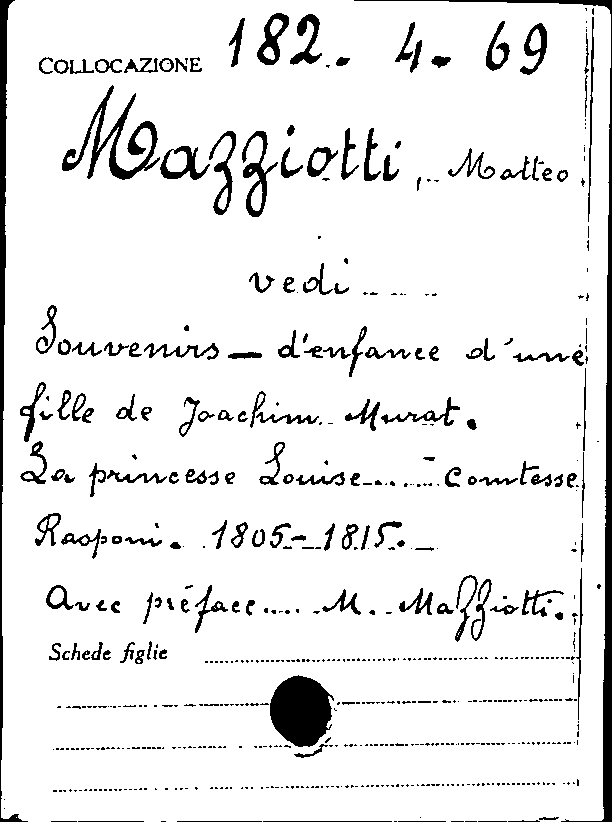 COLLOCAZIONE 182. 4. 69
Mazziotti, Matteo
vedi
Souvenirs – d'enfance d'une
fille de Joachim Murat.
La princesse Louise.... – comtesse
Rasponi. 1805–1815. –
Avec préface.... M. Mazziotti.
Schede figlie